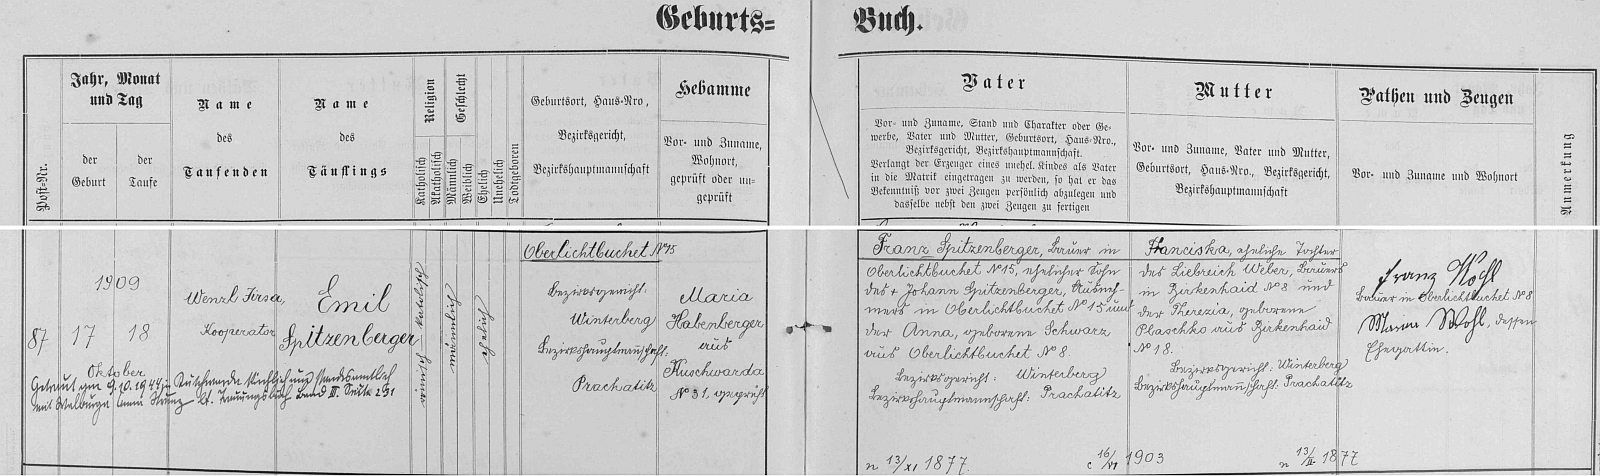 Geburts=
Buch.
Post-Nr.
Jahr, Monat
und Tag
der
Geburt
der
Taufe
Name
des
Taufenden
Name
des
Täuflings
Religion
Katholisch
Akatholisch
Geschlecht
Männlich
Weiblich
Ehelich
Unehelich
Todtgeboren
Geburtsort, Haus-Nro,
Bezirksgericht,
Bezirkshauptmannschaft
Hebamme
Vor- und Zuname,
Wohnort,
geprüft oder un-
geprüft
Vater
Vor- und Zuname, Stand und Charakter oder Ge-
werbe, Vater und Mutter, Geburtsort, Haus-Nro.,
Bezirksgericht, Bezirkshauptmannschaft.
Verlangt der Erzeuger eines unehel. Kindes als Vater
in die Matrik eingetragen zu werden, so hat er das
Bekenntniß vor zwei Zeugen persönlich abzulegen und
dasselbe nebst den zwei Zeugen zu fertigen
Mutter
Vor- und Zuname, Vater und Mutter,
Geburtsort, Haus-Nro., Bezirksgericht,
Bezirkshauptmannschaft
Pathen und Zeugen
Vor- und Zuname und Wohnort
Anmerkung
87
1909
17
18
Oktober
Getraut am 9.10.1944 in Kuschwarda kirchlich und standesamtlich
mit Walburga Anna
Wenzl Jirsa,
Kooperator
Emil
Spitzenberger
römisch-katolisch
männlich
ehelich
Oberlichtbuchet N° 15
Bezirksgericht:
Winterberg
Bezirkshauptmannschaft:
Prachatitz
Maria
Habenberger
aus
Kuschwarda
N° 31, geprüft
Franz Spitzenberger, Bauer in
Oberlichtbuchet N° 15, ehelicher Sohn
des + Johann Spitzenberger, Ausneh-
mers in Oberlichtbuchet N° 15 und
der Anna, geborene Schwarz
aus Oberlichtbuchet N° 8.
Bezirksgericht: Winterberg
Bezirkshauptmannschaft: Prachatitz
n 13/XI 1877.
c 16/VI 1903
Franciska, eheliche Tochter
des Liebreich Weber, Bauers
in Birkenhaid N° 8 und
der Therezia, geborene
Plaschko aus Birkenhaid
N° 18.
Bezirksgericht: Winterberg
Bezirkshauptmannschaft: Prachatitz
n 13/II 1877
Franz
Bauer in Oberlichtbuchet N° 8
Maria Wohl, dessen
Ehegattin.